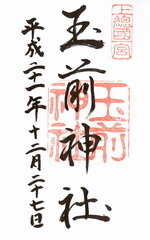 上總國一宮
玉前神社
玉前神社
平成二十一年十二月二十七日